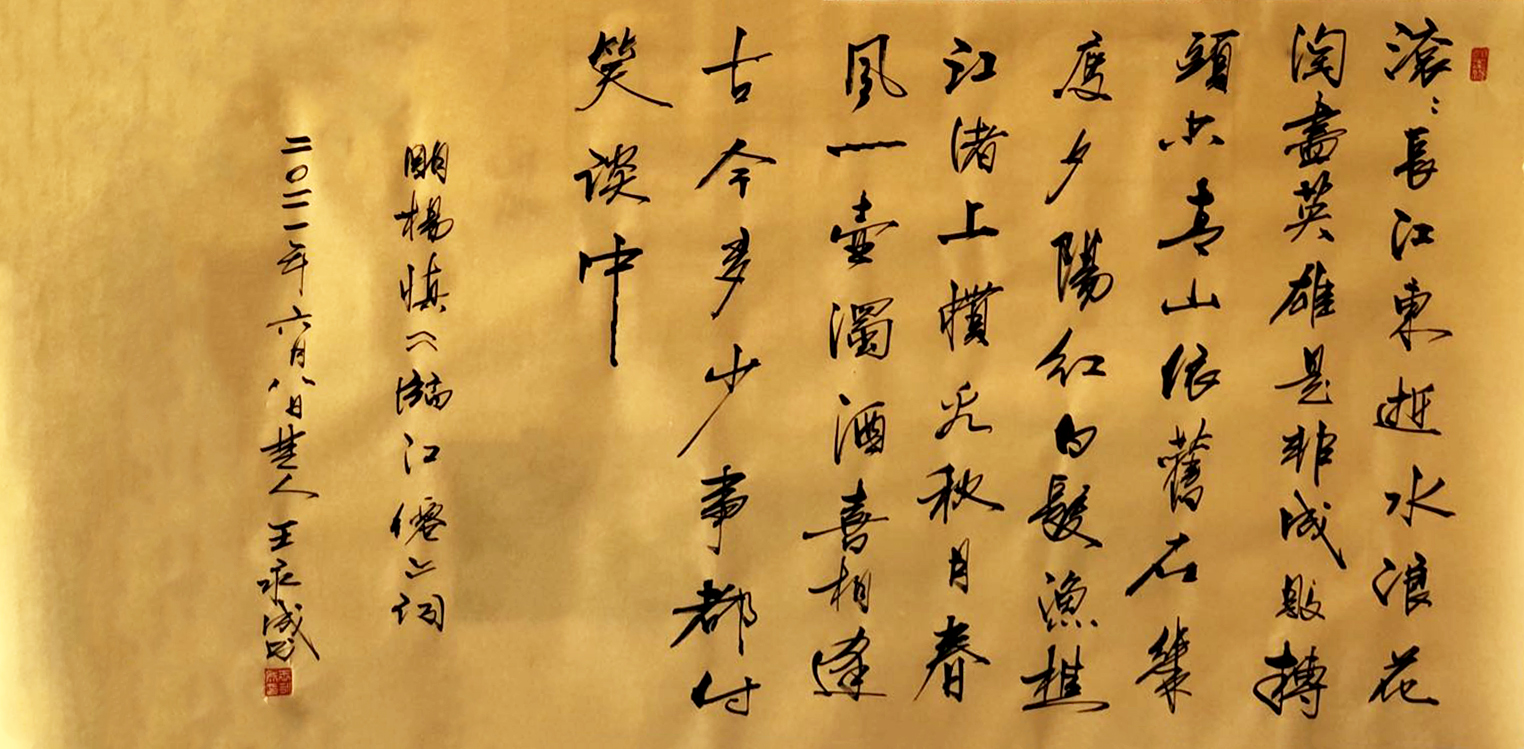 滚〻長江東逝水浪花
淘盡英雄是非成敗轉
頭空青山依舊在幾
度夕陽紅白髮漁樵
江渚上慣看秋月春
風一壺濁酒喜相逢
古今多少事都付
笑談中
明楊慎《臨江僊》詞
二〇二一年六月八日楚人王永成书